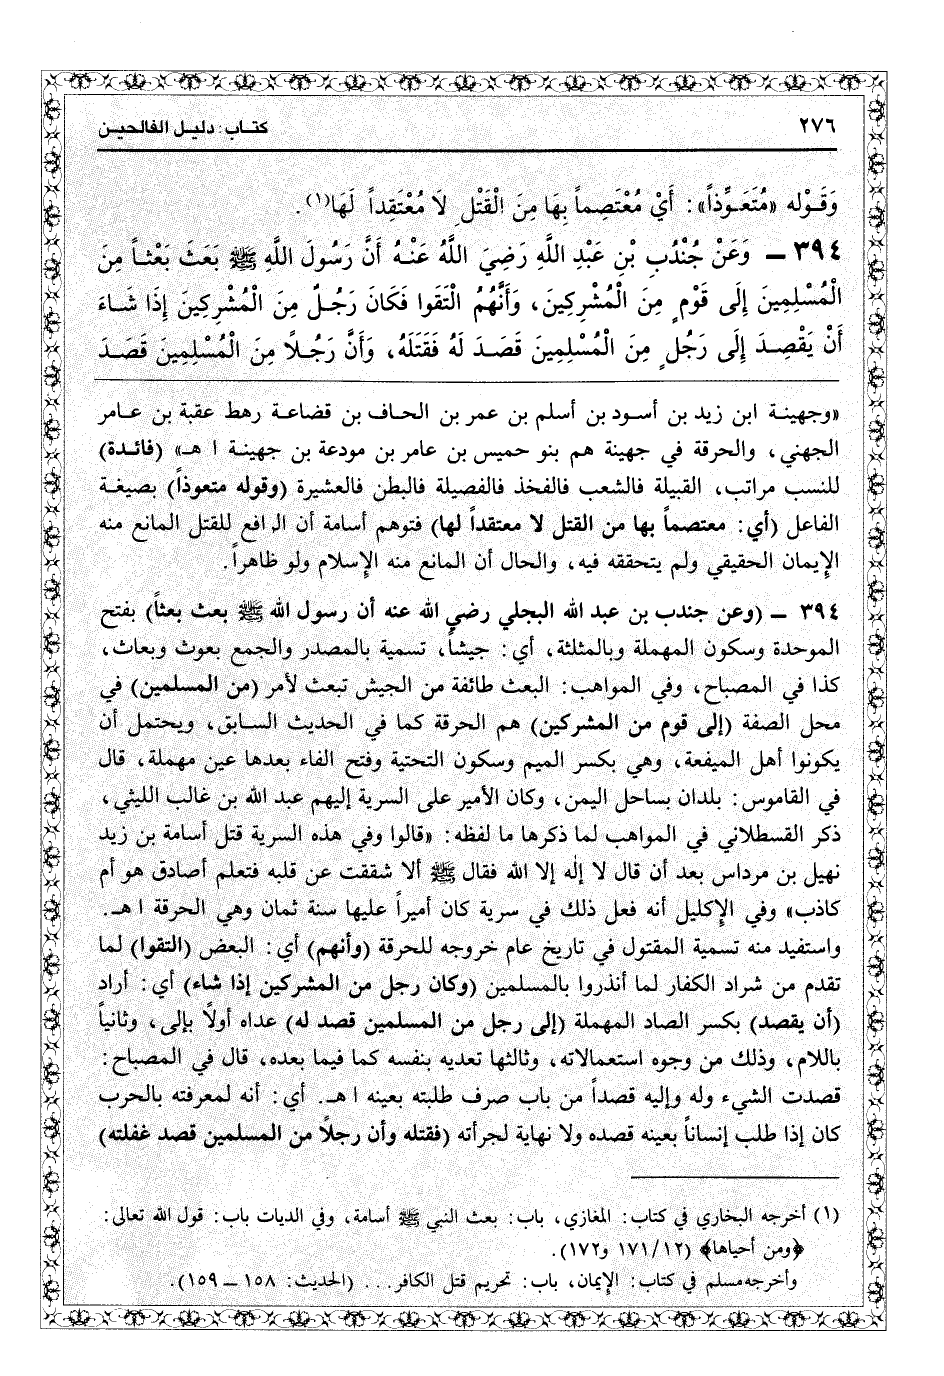 ٢٧٦ كتاب: دليل الفالحين
وَقَـوْله «مُتَعَـوِّذاً»: أَيْ مُعْتَصِماً بِهَا مِنَ الْقَتْلِ لَا مُعْتَقِداً لَهَا(١).
٣٩٤ ـ وَعَنْ جُنْدُبِ بْنِ عَبْدِ اللَّهِ رَضِيَ اللَّهُ عَنْـهُ أَنَّ رَسُولَ اللَّهِ ﷺ بَعَثَ بَعْثـاً مِنَ
الْمُسْلِمِينَ إِلَى قَوْمٍ مِنَ الْمُشْرِكِينَ، وَأَنَّهُمُ الْتَقَوا فَكَانَ رَجُـلٌ مِنَ الْمُشْرِكِينَ إِذَا شَـاءَ
أَنْ يَقْصِـدَ إِلَى رَجُلٍ مِنَ الْمُسْلِمِينَ قَصَـدَ لَهُ فَقَتَلَهُ، وَأَنَّ رَجُـلاً مِنَ الْمُسْلِمِينَ قَصَـدَ
«وجهينـة ابن زيد بن أسـود بن أسلم بن عمر بن الحـاف بن قضاعـة رهط عقبة بن عـامر
الجهني، والحرقة في جهينة هم بنو حميس بن عامر بن مودعة بن جهينـة ا هـ» (فائـدة)
للنسب مراتب، القبيلة فالشعب فالفخذ فالفصيلة فالبطن فالعشيرة (وقوله متعوذاً) بصيغـة
الفاعل (أي: معتصماً بها من القتل لا معتقداً لها) فتوهم أسامة أن الرافع للقتل المانع منه
الإيمان الحقيقي ولم يتحققه فيه، والحال أن المانع منه الإسلام ولو ظاهراً.
٣٩٤ ـ (وعن جندب بن عبد الله البجلي رضي الله عنه أن رسول الله ﷺ بعث بعثاً) بفتح
الموحدة وسكون المهملة وبالمثلثة، أي: جيشاً، تسمية بالمصدر والجمع بعوث وبعاث،
كذا في المصباح، وفي المواهب: البعث طائفة من الجيش تبعث لأمر (من المسلمين) في
محل الصفة (إلى قوم من المشركين) هم الحرقة كما في الحديث السـابق، ويحتمل أن
يكونوا أهل الميفعة، وهي بكسر الميم وسكون التحتية وفتح الفاء بعدها عين مهملة، قال
في القاموس: بلدان بساحل اليمن، وكان الأمير على السرية إليهم عبد الله بن غالب الليثي،
ذكر القسطلاني في المواهب لما ذكرها ما لفظه: «قالوا وفي هذه السرية قتل أسامة بن زيد
نهيل بن مرداس بعد أن قال لا إله إلا الله فقال ﷺ ألا شققت عن قلبه فتعلم أصادق هو أم
كاذب» وفي الإكليل أنه فعل ذلك في سرية كان أميراً عليها سنة ثمان وهي الحرقة ا هـ.
واستفيد منه تسمية المقتول في تاريخ عام خروجه للحرقة (وأنهم) أي: البعض (التقوا) لما
تقدم من شراد الكفار لما أنذروا بالمسلمين (وكان رجل من المشركين إذا شاء) أي: أراد
(أن يقصد) بكسر الصاد المهملة (إلى رجل من المسلمين قصد له) عداه أولاً بإلى، وثانياً
باللام، وذلك من وجوه استعمالاته، وثالثها تعديه بنفسه كما فيما بعده، قال في المصباح:
قصدت الشيء وله وإليه قصداً من باب صرف طلبته بعينه ا هـ. أي: أنه لمعرفته بالحرب
كان إذا طلب إنساناً بعينه قصده ولا نهاية لجرأته (فقتله وأن رجلاً من المسلمين قصد غفلته)
(١) أخرجه البخاري في كتاب: المغازي، باب: بعث النبي ﷺ أسامة، وفي الديات باب: قول الله تعالى:
﴿ومن أحياها﴾ (١٧١/١٢ و١٧٢).
وأخرجه مسلم في كتاب: الإيمان، باب: تحريم قتل الكافر... (الحديث: ١٥٨ ـ ١٥٩).